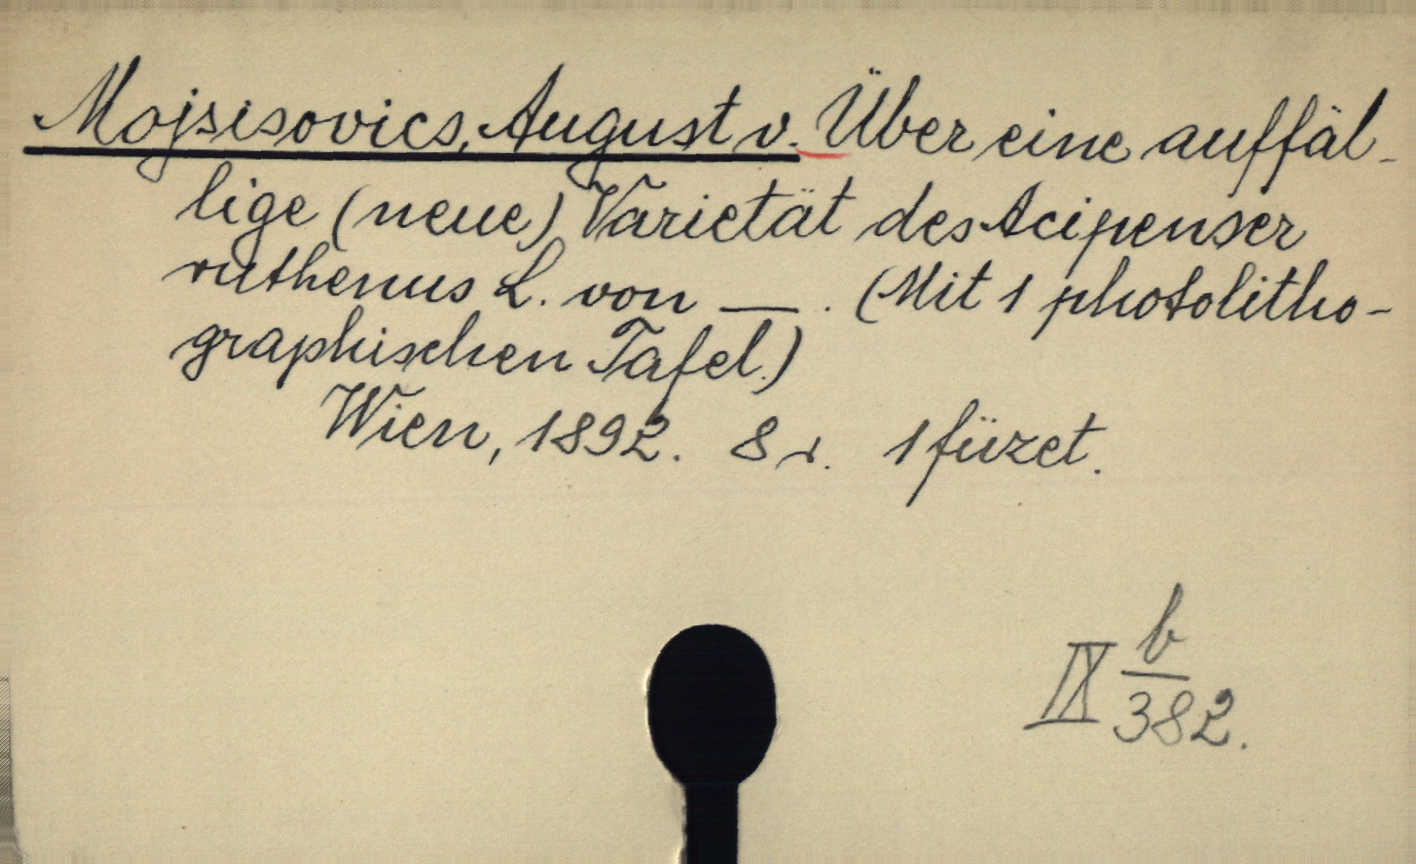 Mojsisovics, August v. Über eine auffäl-
lige (neue) Varietät des Acipenser
ruthenus L. von __ . (Mit 1 photolitho-
graphischen Tafel.)
Wien, 1892. 8 r. 1 füzet.
IX b/382.